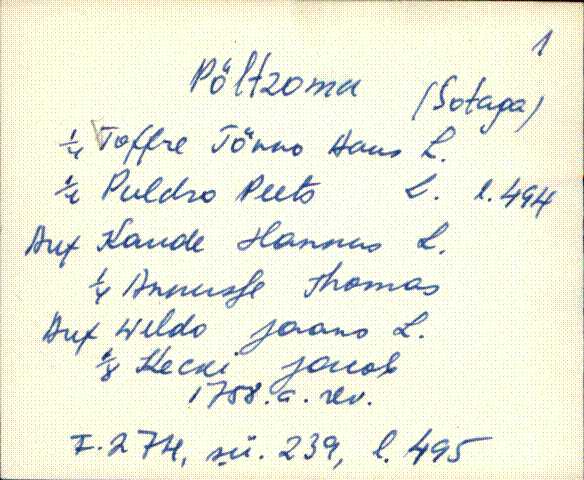 1
Pöltzama
(Sotaga)
1/4 Toffre Tönno Hans L.
1/4 Puldro Peets L. l. 494
Auf Kaude Hannus L.
1/4 Annusse Thomas
Auf Wildo Jaans L.
1/8 Kecki Jacob
1758. a. rev.
F. 274, sü. 239, l. 495